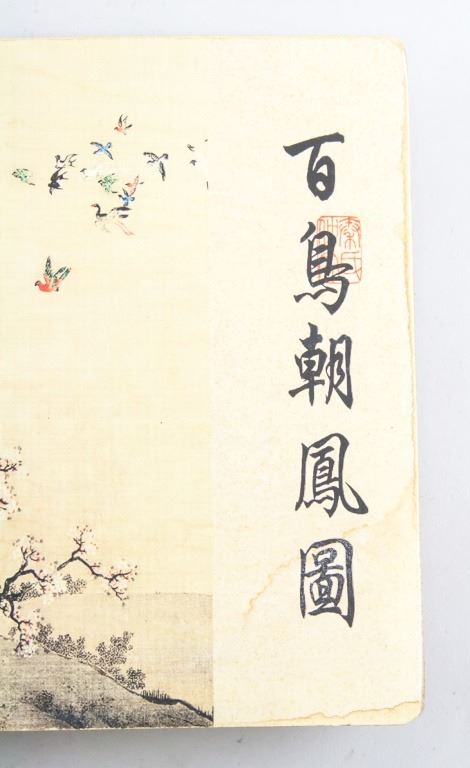 百鳥朝鳳圖